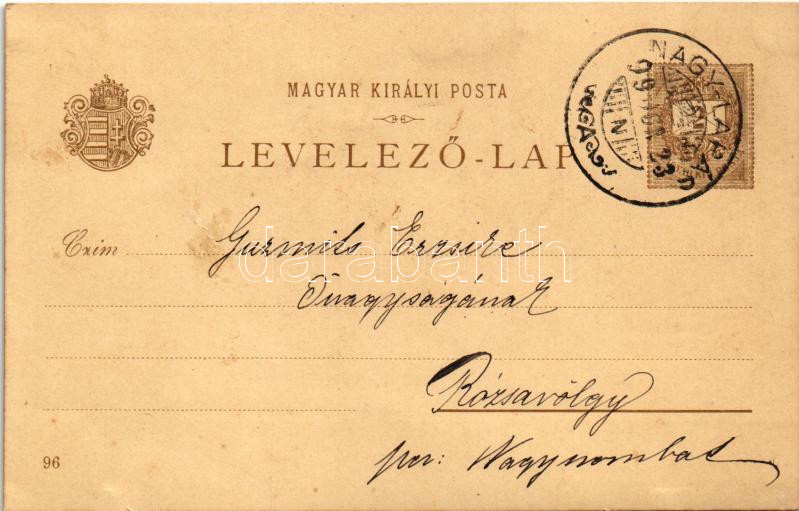 MAGYAR KIRÁLYI POSTA
LEVELEZŐ-LAP
NAGY-LAPÁS
99
23
N
Czim
Gurmits Erzsike
Őnagyságának
Rózsavölgy
per: Nagyszombat
96
darabanth